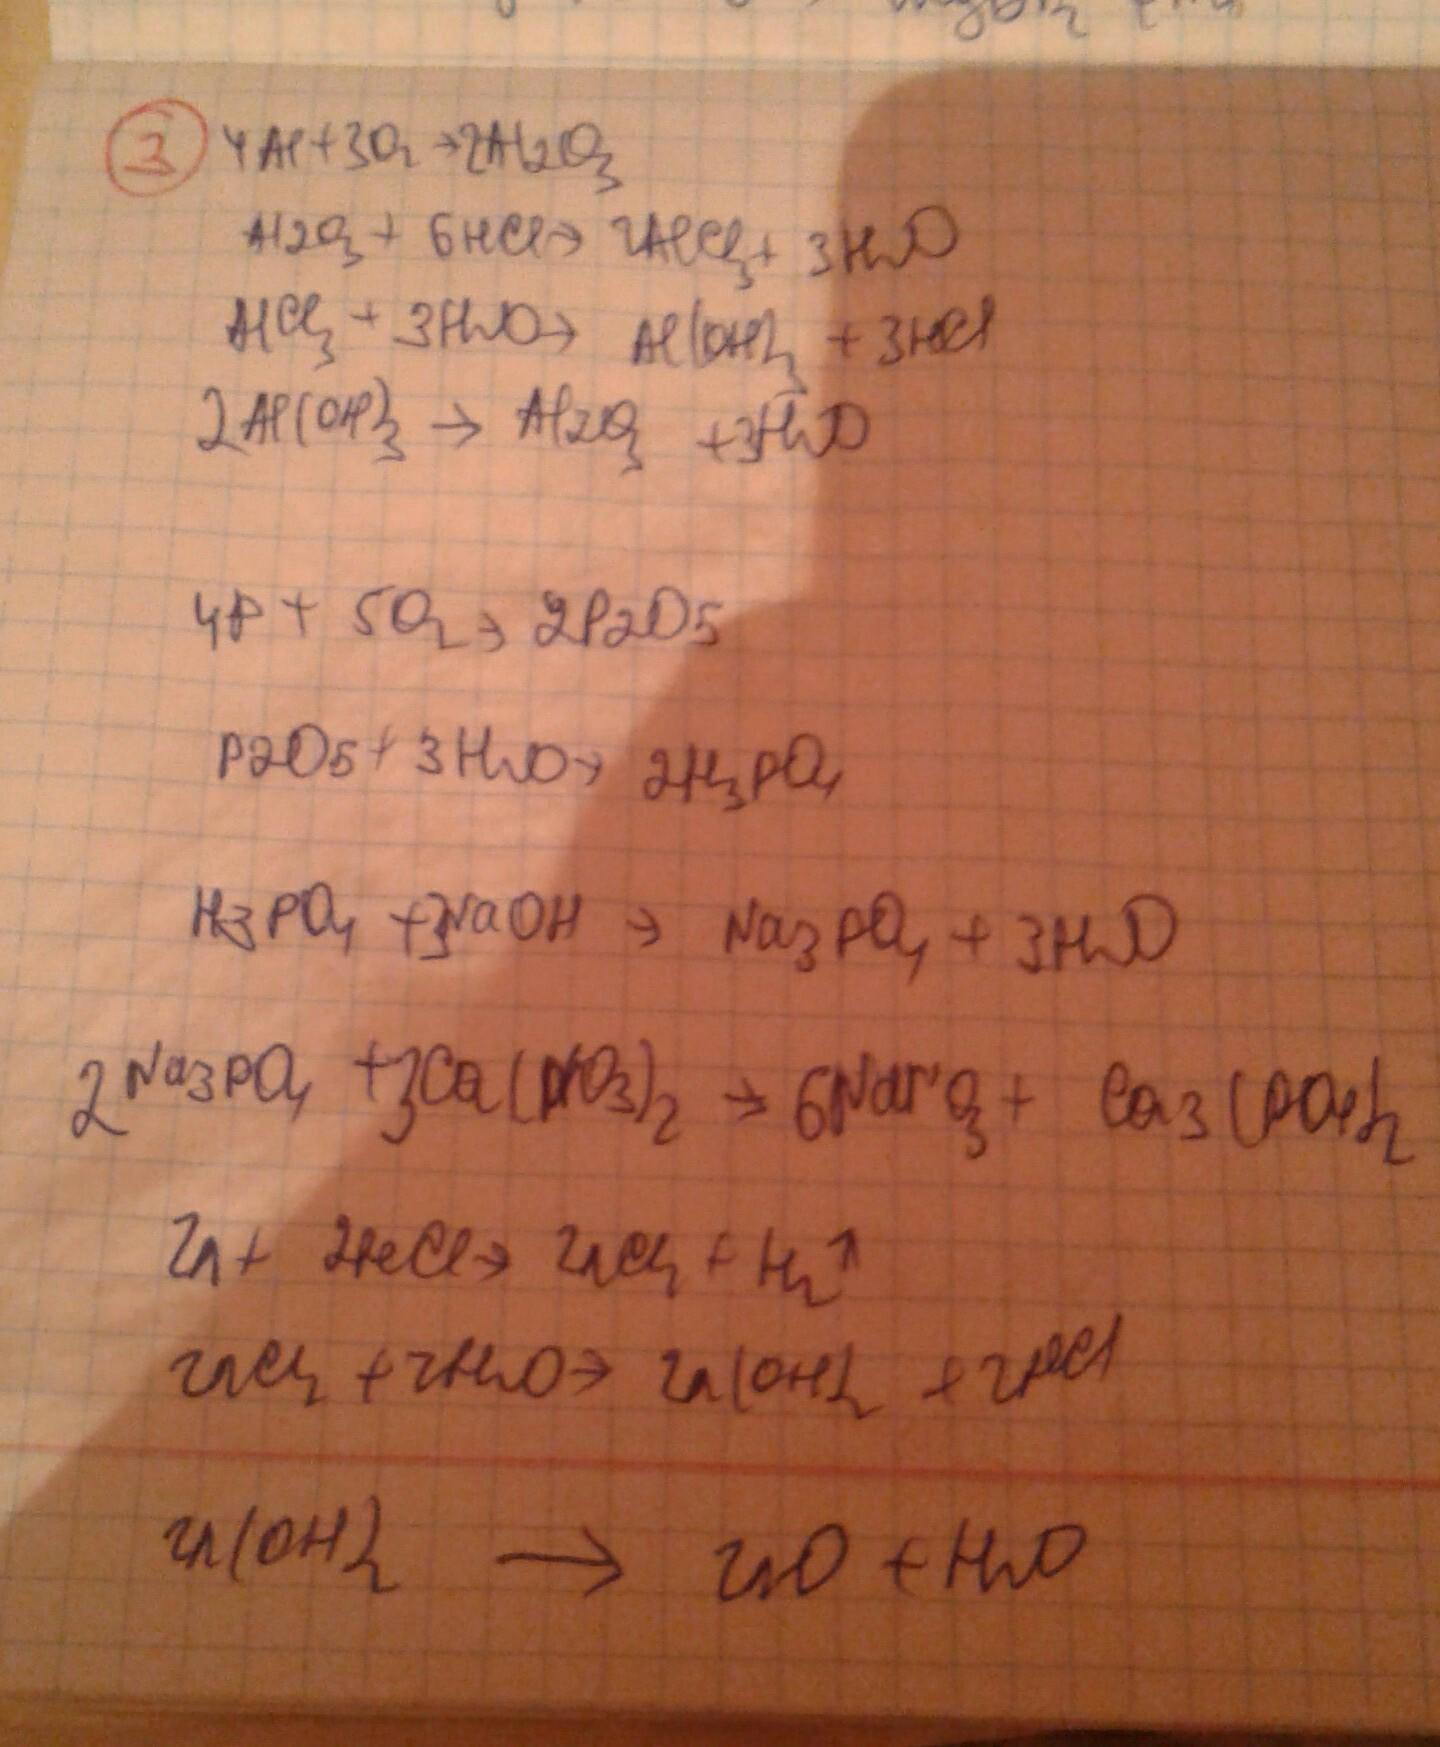 3 4Al + 3O2 → 2Al2O3
Al2O3 + 6HCl → 2AlCl3 + 3H2O
AlCl3 + 3H2O → Al(OH)3 + 3HCl
2Al(OH)3 → Al2O3 + 3H2O
4P + 5O2 → 2P2O5
P2O5 + 3H2O → 2H3PO4
H3PO4 + 3NaOH → Na3PO4 + 3H2O
2Na3PO4 + 3Ca(NO3)2 → 6NaNO3 + Ca3(PO4)2
Zn + 2HCl → ZnCl2 + H2↑
ZnCl2 + 2H2O → Zn(OH)2 + 2HCl
Zn(OH)2 → ZnO + H2O